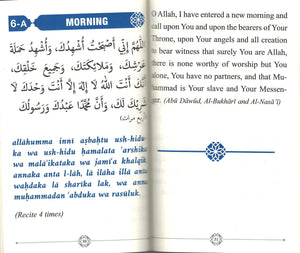 6-A MORNING
اللَّهُمَّ إِنِّي أَصْبَحْتُ أُشْهِدُكَ، وَأُشْهِدُ حَمَلَةَ
عَرْشِكَ، وَمَلَائِكَتَكَ، وَجَمِيعَ خَلْقِكَ،
أَنَّكَ أَنْتَ اللَّهُ لَا إِلَهَ إِلَّا أَنْتَ وَحْدَكَ لَا
شَرِيكَ لَكَ، وَأَنَّ مُحَمَّدًا عَبْدُكَ وَرَسُولُكَ
(أربع مرات)
allāhumma inni aṣbaḥtu ush-hidu-
ka wa ush-hidu ḥamalata 'arshi-
ka wa malā'ikataka wa jami'a khalqik,
annaka anta l-lāh, lā ilāha illā anta
waḥdaka lā sharika lak, wa anna
muḥammadan 'abduka wa rasūluk.
(Recite 4 times)
30
O Allah, I have entered a new morning and
call upon You and upon the bearers of Your
Throne, upon Your angels and all creation
to bear witness that surely You are Allah,
there is none worthy of worship but You
alone, You have no partners, and that Mu-
hammad is Your slave and Your Messen-
ger. (Abū Dāwūd, Al-Bukhārī and Al-Nasā'ī)
31